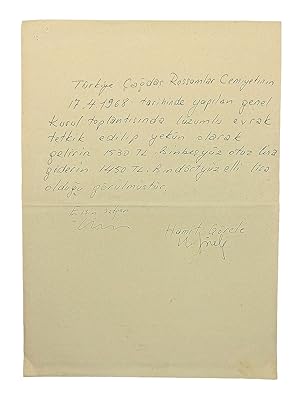 Türkiye Çağdaş Ressamlar Cemiyetinin
17.4.1968 tarihinde yapılan genel
kurul toplantısında lüzumlu evrak
tetkik edilip yekûn olarak
gelirin 1530 TL. Binbeşyüz otuz lira
giderin 1450 TL. Bindörtyüz elli lira
olduğu görülmüştür.
Hamit Görele